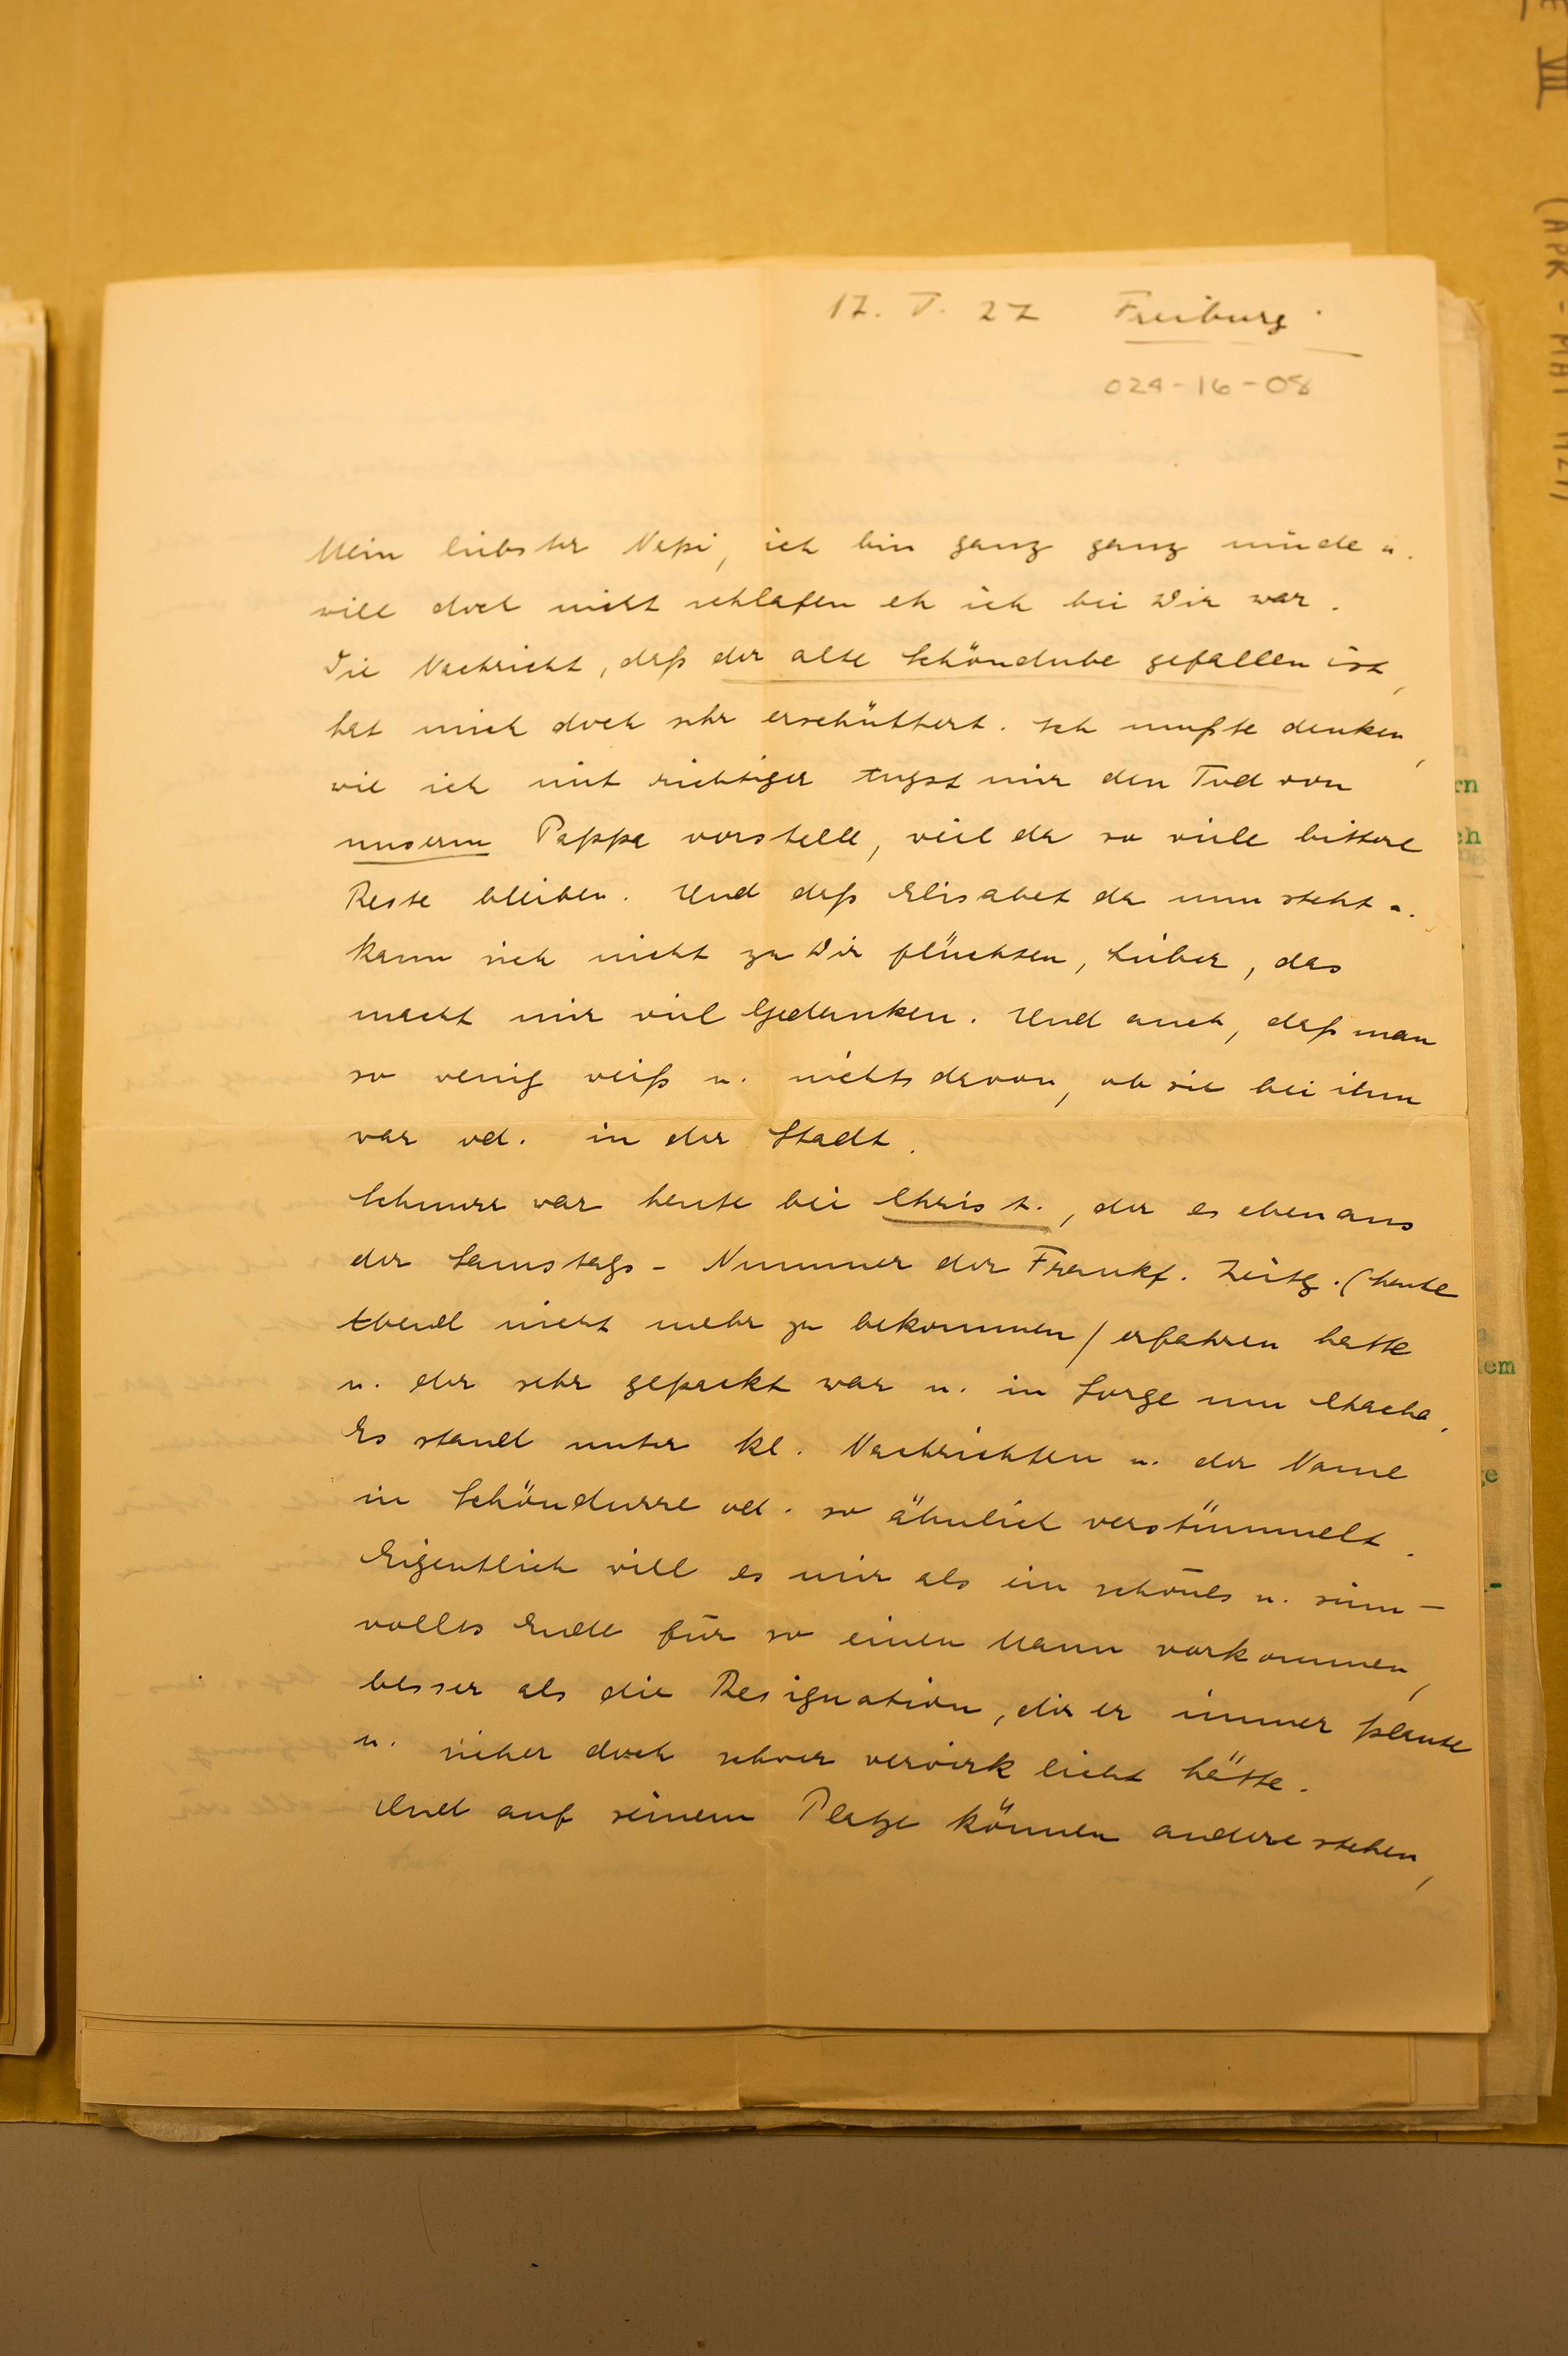 E VII
(APK - MAT
17. V. 27 Freiburg.
024-16-08
Mein liebster Nepi, ich bin ganz ganz müde u.
will doch nicht schlafen eh ich bei Dir war.
Die Nachricht, daß der alte Schöndube gefallen ist,
hat mich doch sehr erschüttert. Ich mußte denken,
wie ich mit richtiger Angst mir den Tod von
unserm Pappa vorstelle, weil da so viele bittere
Reste bleiben. Und daß Elisabet da nun steht u.
kann sich nicht zu Dir flüchten, Lieber, das
macht mir viel Gedanken. Und auch, daß man
so wenig weiß u. nichts davon, ob sie bei ihm
war od. in der Stadt.
Schnurr war heute bei Christ., der es eben aus
der Samstags-Nummer der Frankf. Zeitg. (heute
Abend nicht mehr zu bekommen) erfahren hatte
u. der sehr gepackt war u. in Sorge um Chacha.
Es stand unter kl. Nachrichten u. der Name
in Schöndurre od. so ähnlich verstümmelt.
Eigentlich will es mir als ein schönes u. sinn-
volles Ende für so einen Mann vorkommen,
besser als die Resignation, die er immer plante
u. sicher doch schwer verwirklicht hätte.
Und auf seinem Platze können andere stehen,
rn
ch
lem
ge